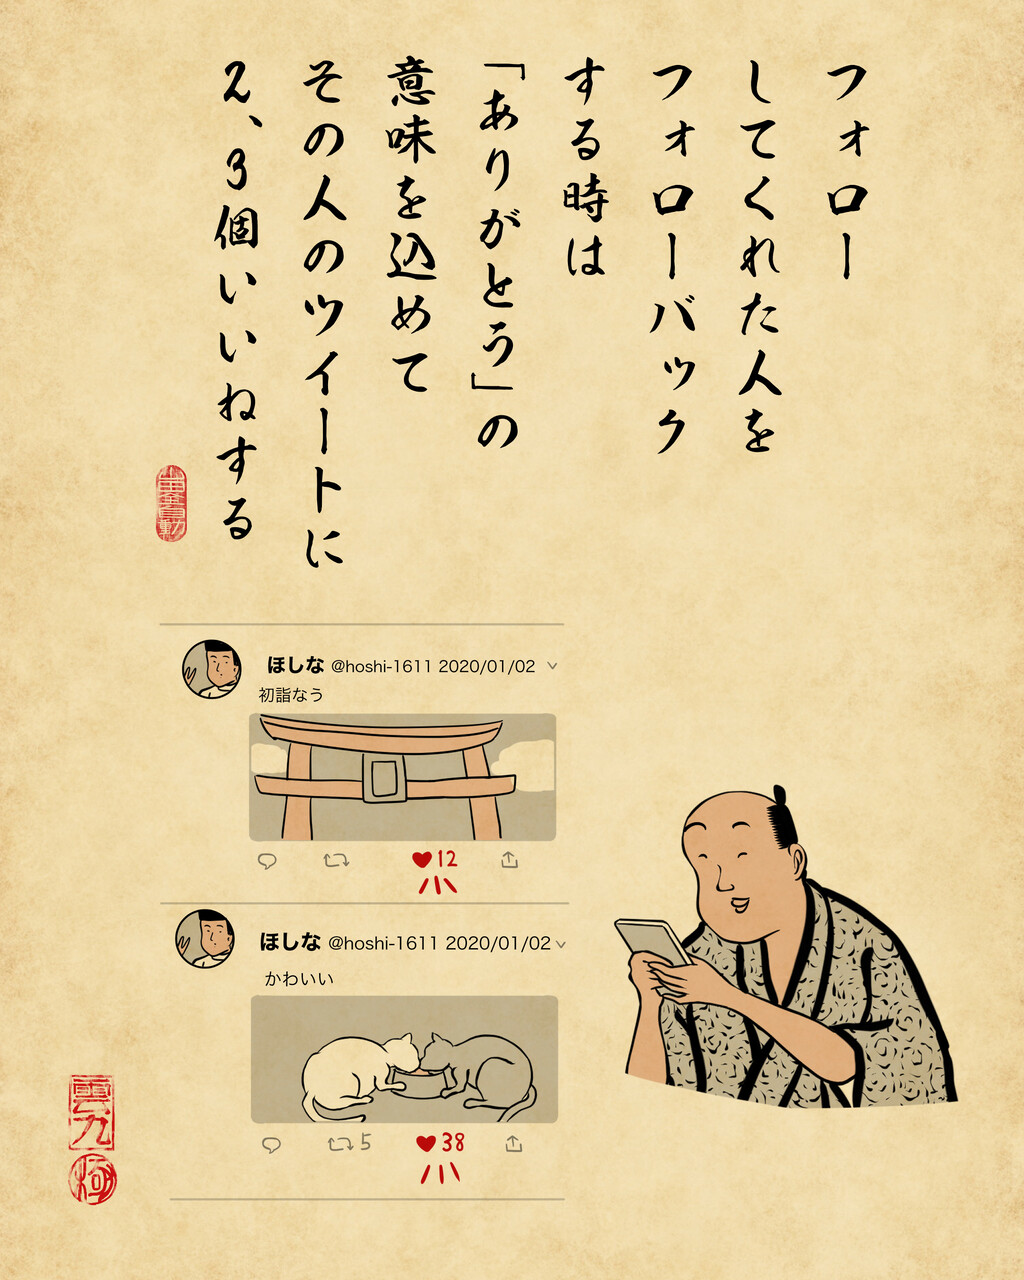 フォロー
してくれた人を
フォローバック
する時は
「ありがとう」の
意味を込めて
その人のツイートに
2、3個いいねする
ほしな @hoshi-1611 2020/01/02
初詣なう
12
ほしな @hoshi-1611 2020/01/02
かわいい
5 38